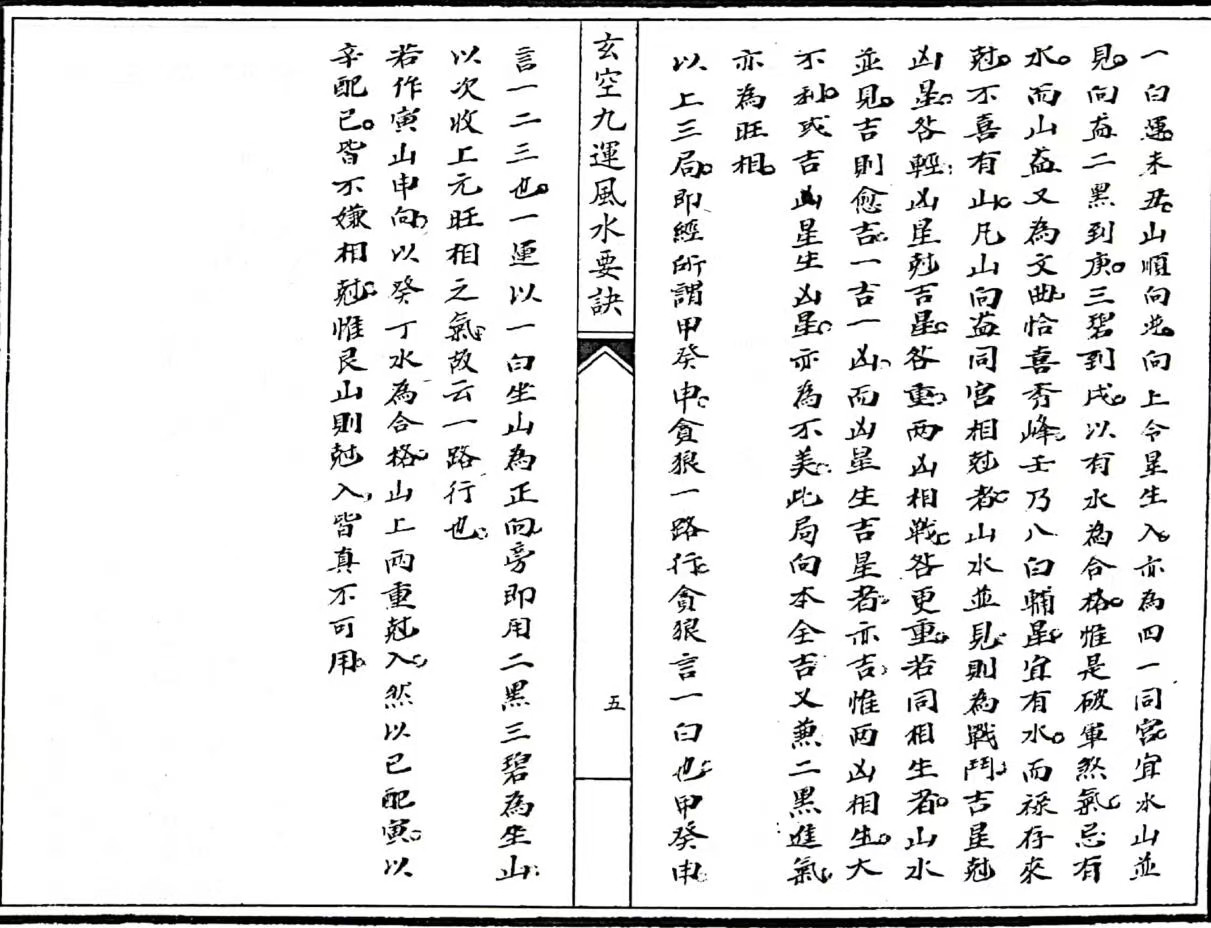 一白運。未丑山順向逆。向上令星生入。亦為四一同宮。宜水山並
見。向盎二黑到庚。三碧到戌。以有水為合格。惟是破軍煞氣。忌有
水。而山盎又為文曲。恰喜秀峰。壬乃八白輔星。宜有水。而祿存來
尅。不喜有山。凡山向盎同宮相尅者。山水並見。則為戰鬥。吉星尅
凶星。咎輕。凶星尅吉星。咎重。兩凶相戰。咎更重。若同相生者。山水
並見。吉則愈吉。一吉一凶。而凶星生吉星者。亦吉。惟兩凶相生。大
不利。或吉凶星生凶星。亦為不美。此局向本全吉。又兼二黑進氣。
亦為旺相。
以上三局。即經所謂甲癸申。貪狼一路行。貪狼言一白也。甲癸申。
玄空九運風水要訣
五
言一二三也。一運以一白坐山為正向。旁即用二黑三碧為坐山。
以次收上元旺相之氣。故云一路行也。
若作寅山申向。以癸丁水為合格。山上兩重尅入。然以巳配寅。以
辛配巳。皆不嫌相尅。惟艮山則尅入。皆真不可用。